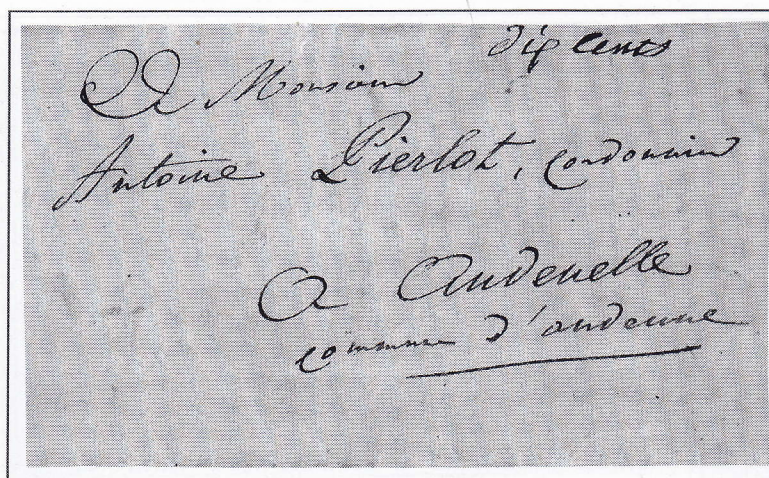 dix cents
A Monsieur
Antoine Pierlot, cordonnier
A andenelle
commune d'andenne